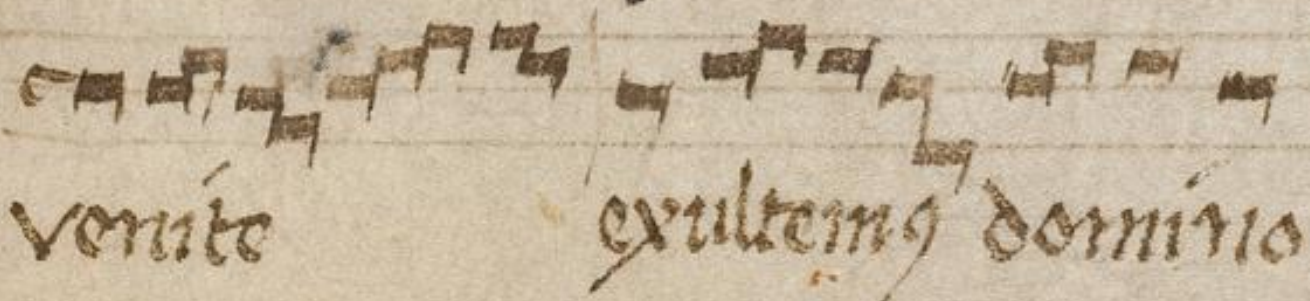 venite exultemꝰ domino